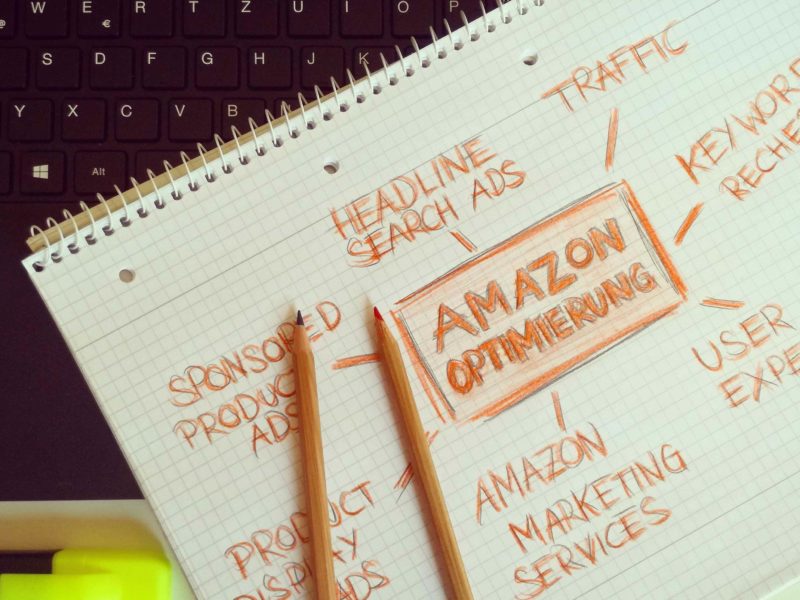 W E R T Z U I O P
€
S D F G H J K
Y X C V B
Alt
TRAFFIC
KEYWORD
RECHE
HEADLINE
SEARCH ADS
AMAZON
OPTIMIERUNG
USER
EXPE
SPONSORED
PRODUCT
ADS
AMAZON
MARKETING
SERVICES
PRODUCT
DISPLAY
ADS